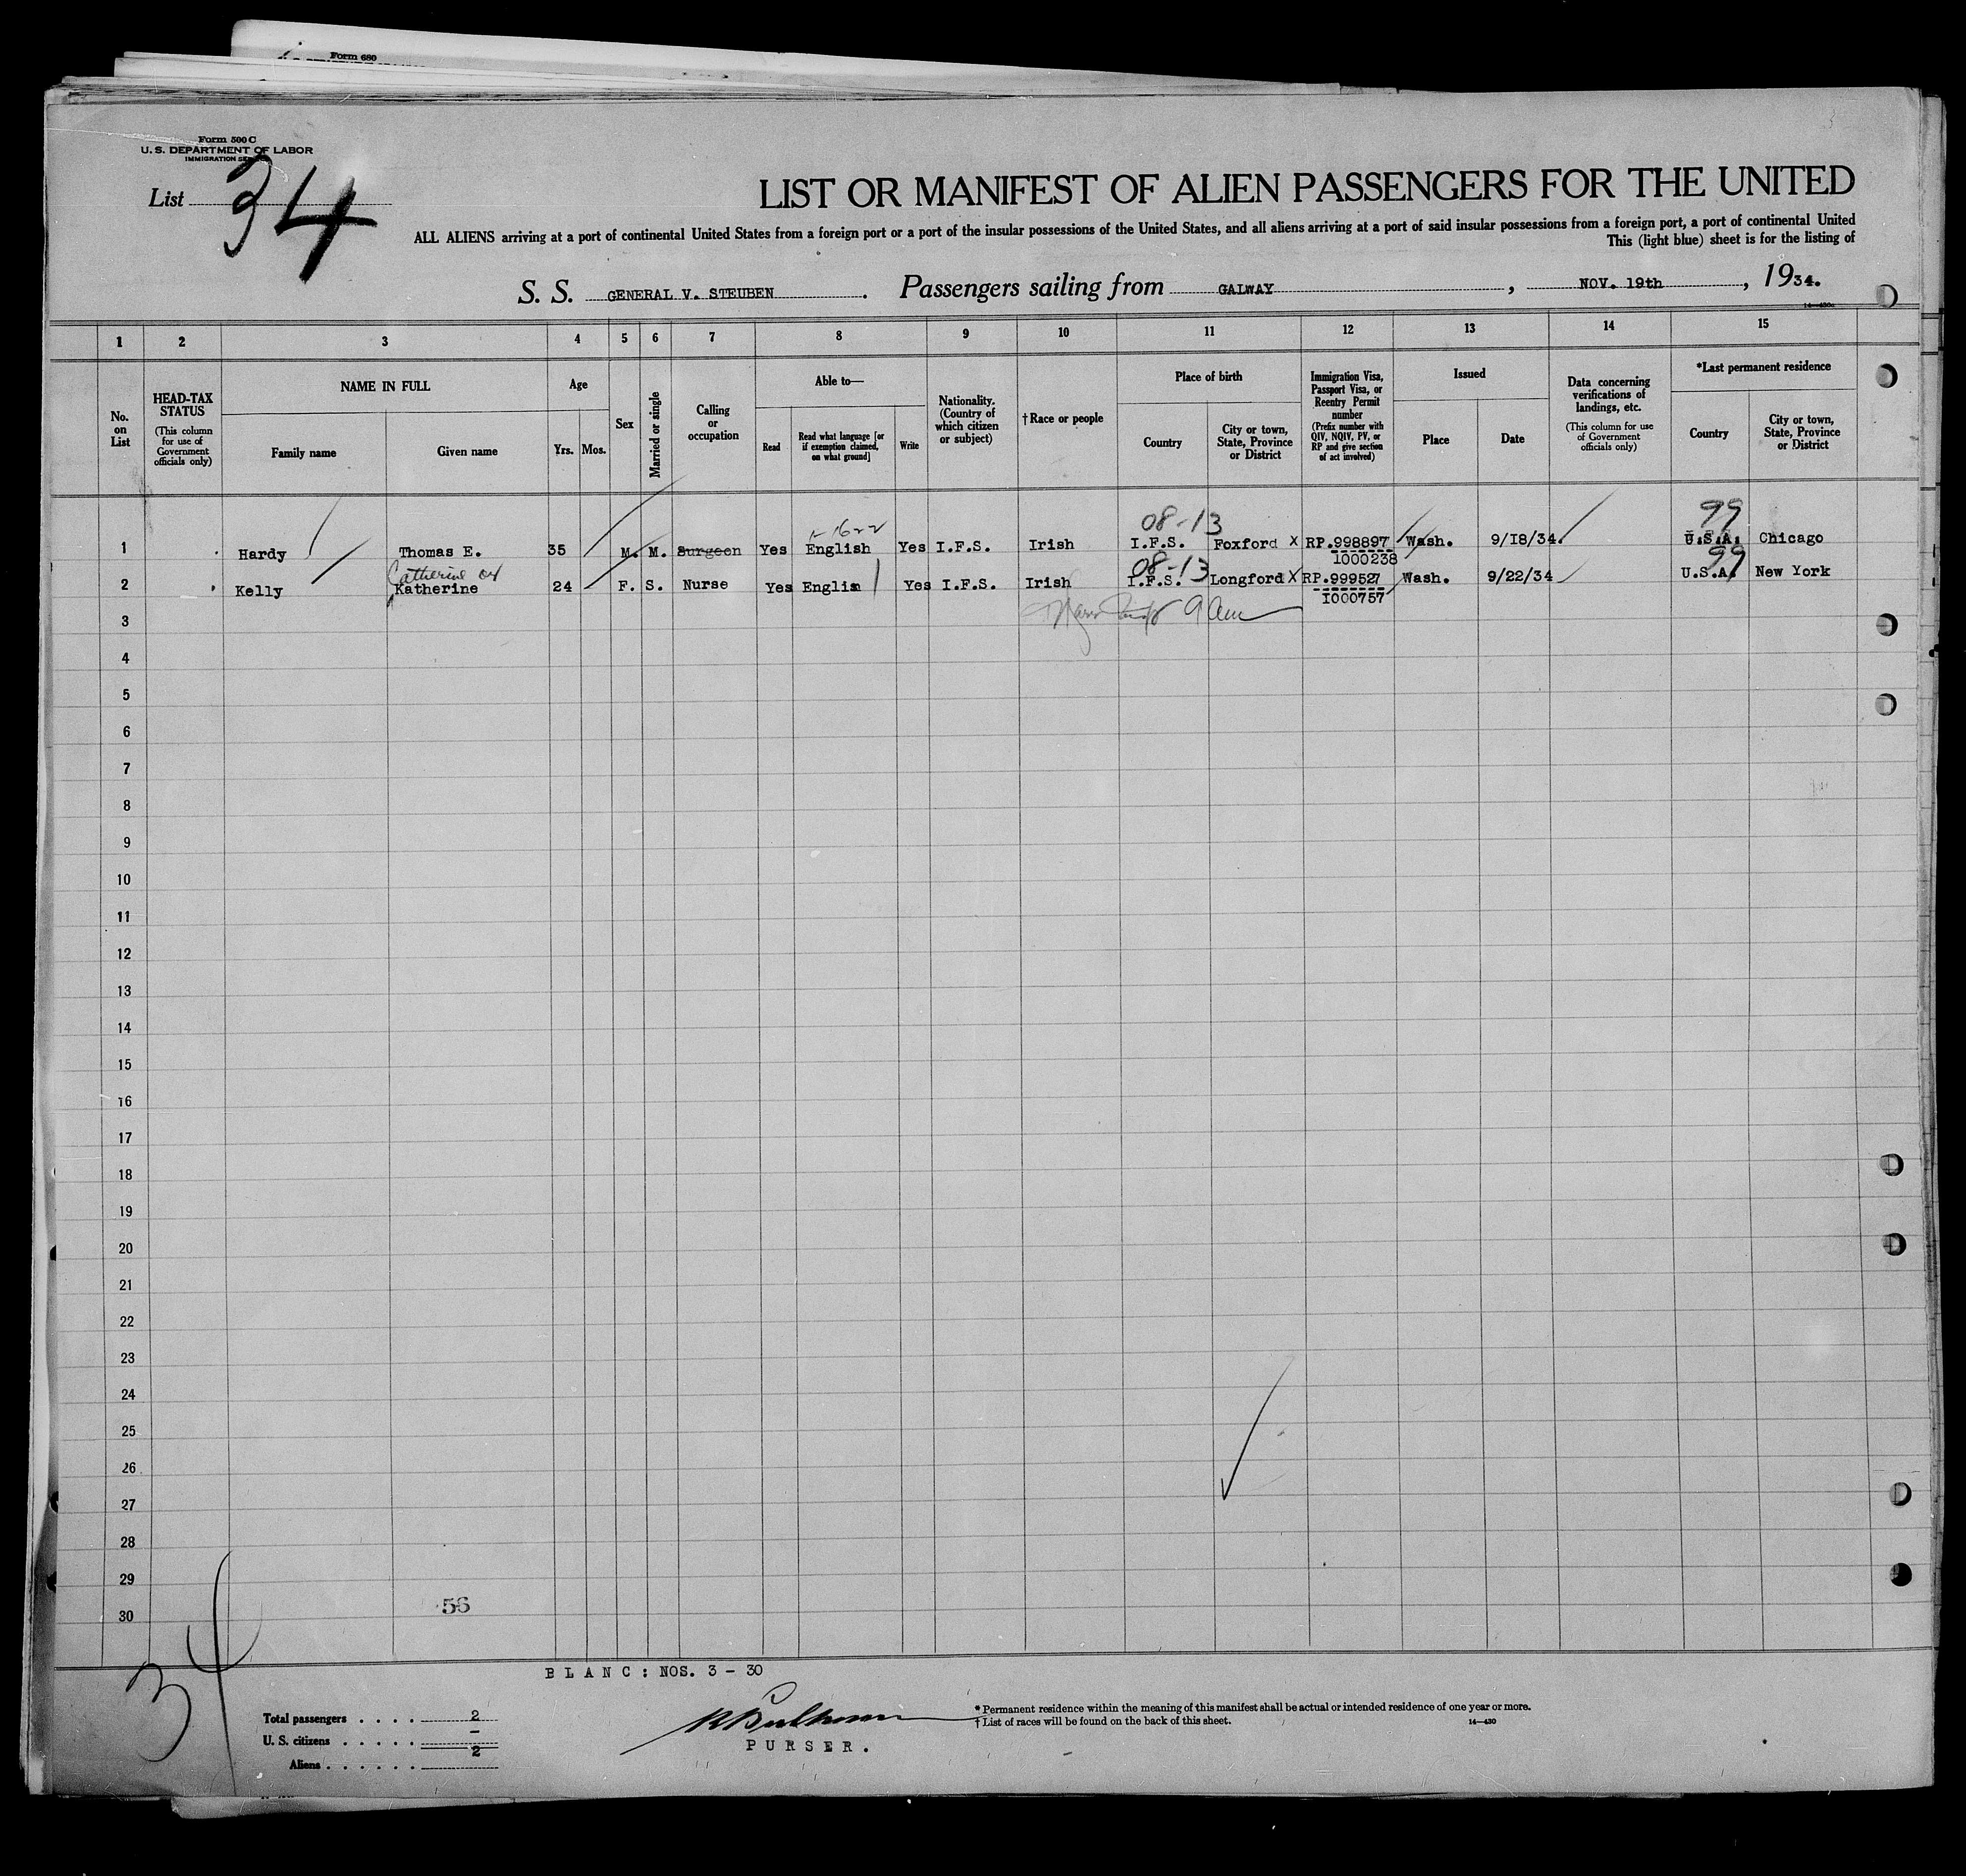 Form 680
Form 500 C
U. S. DEPARTMENT OF LABOR
IMMIGRATION
List 34
LIST OR MANIFEST OF ALIEN PASSENGERS FOR THE UNITED
ALL ALIENS arriving at a port of continental United States from a foreign port or a port of the insular possessions of the United States, and all aliens arriving at a port of said insular possessions from a foreign port, a port of continental United
This (light blue) sheet is for the listing of
S. S. GENERAL V. STEUBEN. Passengers sailing from GALWAY, NOV. 19th, 1934.
1 2 3 4 5 6 7 8 9 10 11 12 13 14 15
No. on List
HEAD-TAX STATUS (This column for use of Government officials only)
NAME IN FULL
Family name Given name
Age
Yrs. Mos.
Sex
Married or single
Calling or occupation
Able to—
Read Read what language [or if exemption claimed, on what ground] Write
Nationality. (Country of which citizen or subject)
† Race or people
Place of birth
Country City or town, State, Province or District
Immigration Visa, Passport Visa, or Reentry Permit number (Prefix number with QIV, NQIV, PV, or RP and give section of act involved)
Issued
Place Date
Data concerning verifications of landings, etc. (This column for use of Government officials only)
*Last permanent residence
Country City or town, State, Province or District
08-13 99
1 Hardy Thomas E. 35 M. M. Surgeon Yes English Yes I.F.S. Irish I.F.S. Foxford X RP.998897 Wash. 9/18/34. U.S.A. Chicago
1000238
Catherine or 08-13 99
2 Kelly Katherine 24 F. S. Nurse Yes Englis Yes I.F.S. Irish I.F.S. Longford X RP.999527 Wash. 9/22/34 U.S.A. New York
1000757
9 am
3
4
5
6
7
8
9
10
11
12
13
14
15
16
17
18
19
20
21
22
23
24
25
26
27
28
29
30
56
34
BLANC: NOS. 3 - 30
Total passengers . . . . 2
U. S. citizens . . . . . -
Aliens . . . . . . 2
PURSER.
* Permanent residence within the meaning of this manifest shall be actual or intended residence of one year or more.
† List of races will be found on the back of this sheet.
14—430